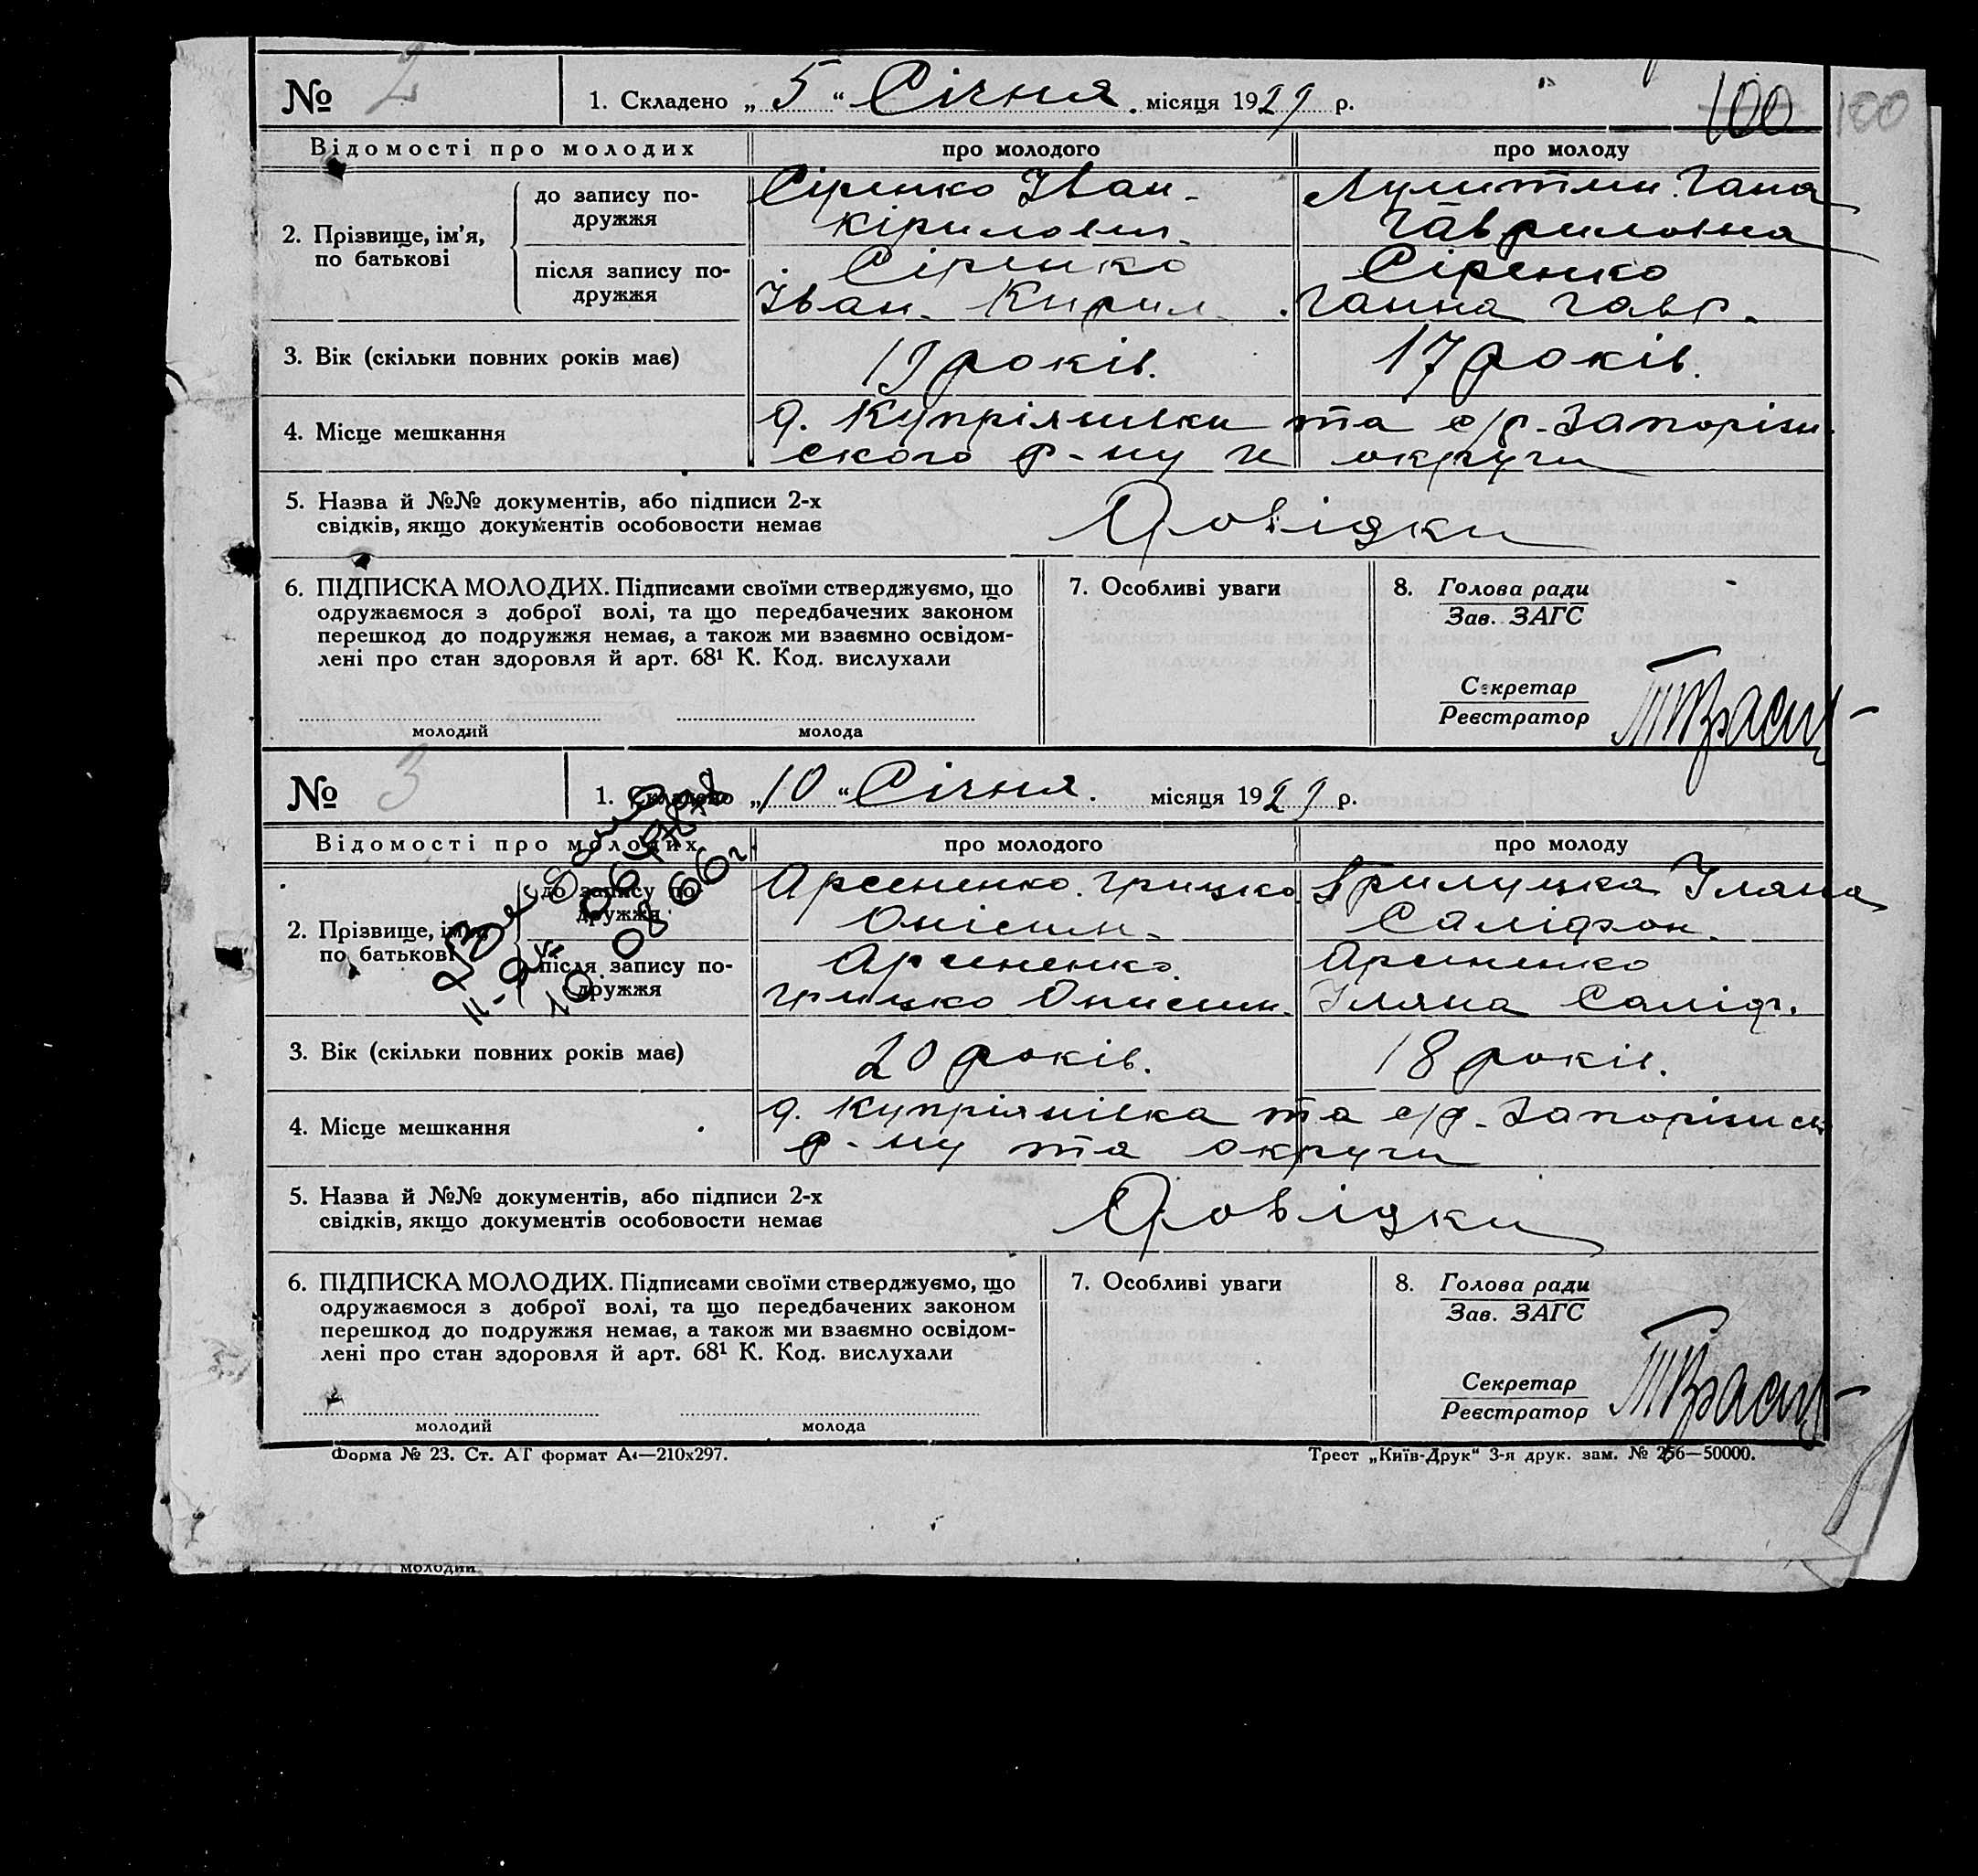 № 2
1. Складено „ 5 “ Січня. місяця 1929 р.
100 100
Відомості про молодих про молодого про молоду
2. Прізвище, ім’я, по батькові
до запису подружжя
Сіренко Іван Гана
Кірилович. Гавриловна
після запису по-
дружжя
Сіренко Сіренко
Іван. Кирил. Ганна Гавр.
3. Вік (скільки повних років має) 19 років. 17 років.
4. Місце мешкання
с/р. Запорізь-
ского р-ну и округи
5. Назва й №№ документів, або підписи 2-х
свідків, якщо документів особовости немає
Довідки
6. ПІДПИСКА МОЛОДИХ. Підписами своїми стверджуємо, що
одружаємося з доброї волі, та що передбачених законом
перешкод до подружжя немає, а також ми взаємно освідом-
лені про стан здоровля й арт. 68¹ К. Код. вислухали
молодий молода
7. Особливі уваги
8. Голова ради
Зав. ЗАГС
Секретар
Реєстратор
№ 3
1. Складено „ 10 “ Січня. місяця 1929 р.
Відомості про молодих про молодого про молоду
2. Прізвище, ім’я,
по батькові
до запису по-
дружжя
Арсененко. Грицько Прилуцька Іляна
Онісим.
після запису по-
дружжя
Арсененко. Арсененко
Грицько Онисим. Іляна
3. Вік (скільки повних років має) 20 років. 18 років.
4. Місце мешкання
д. Купріянівка та с/р. Запорізьк
р-ну та округи
5. Назва й №№ документів, або підписи 2-х
свідків, якщо документів особовости немає
Довідки
6. ПІДПИСКА МОЛОДИХ. Підписами своїми стверджуємо, що
одружаємося з доброї волі, та що передбачених законом
перешкод до подружжя немає, а також ми взаємно освідом-
лені про стан здоровля й арт. 68¹ К. Код. вислухали
молодий молода
7. Особливі уваги
8. Голова ради
Зав. ЗАГС
Секретар
Реєстратор
Форма № 23. Ст. АГ формат А4—210x297.
Трест „Київ-Друк“ 3-я друк. зам. № 256—50000.
молодий